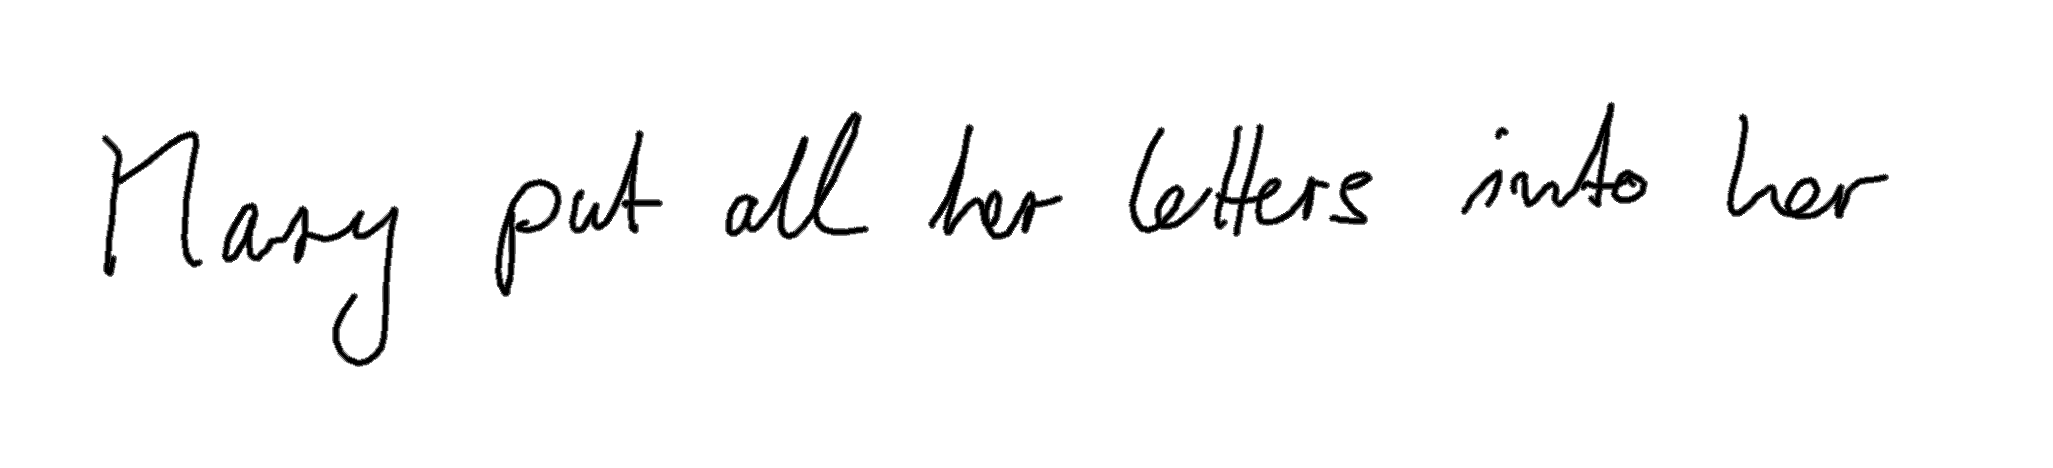 Mary put all her letters into her